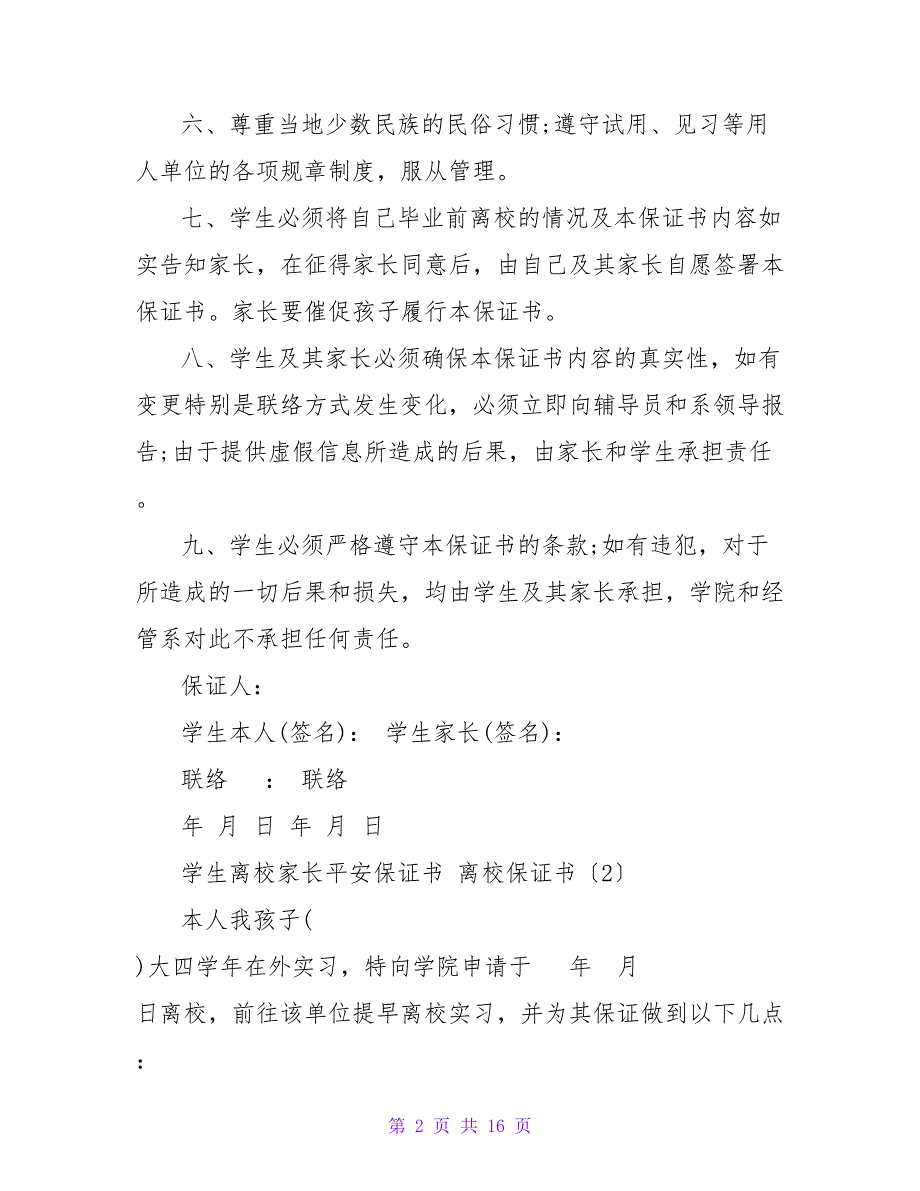 六、尊重当地少数民族的民俗习惯;遵守试用、见习等用
人单位的各项规章制度，服从管理。
七、学生必须将自己毕业前离校的情况及本保证书内容如
实告知家长，在征得家长同意后，由自己及其家长自愿签署本
保证书。家长要催促孩子履行本保证书。
八、学生及其家长必须确保本保证书内容的真实性，如有
变更特别是联络方式发生变化，必须立即向辅导员和系领导报
告;由于提供虚假信息所造成的后果，由家长和学生承担责任
。
九、学生必须严格遵守本保证书的条款;如有违犯，对于
所造成的一切后果和损失，均由学生及其家长承担，学院和经
管系对此不承担任何责任。
保证人：
学生本人(签名)： 学生家长(签名)：
联络 ： 联络
年 月 日 年 月 日
学生离校家长平安保证书 离校保证书〔2〕
本人我孩子(
)大四学年在外实习，特向学院申请于 年 月
日离校，前往该单位提早离校实习，并为其保证做到以下几点
：
第 2 页 共 16 页